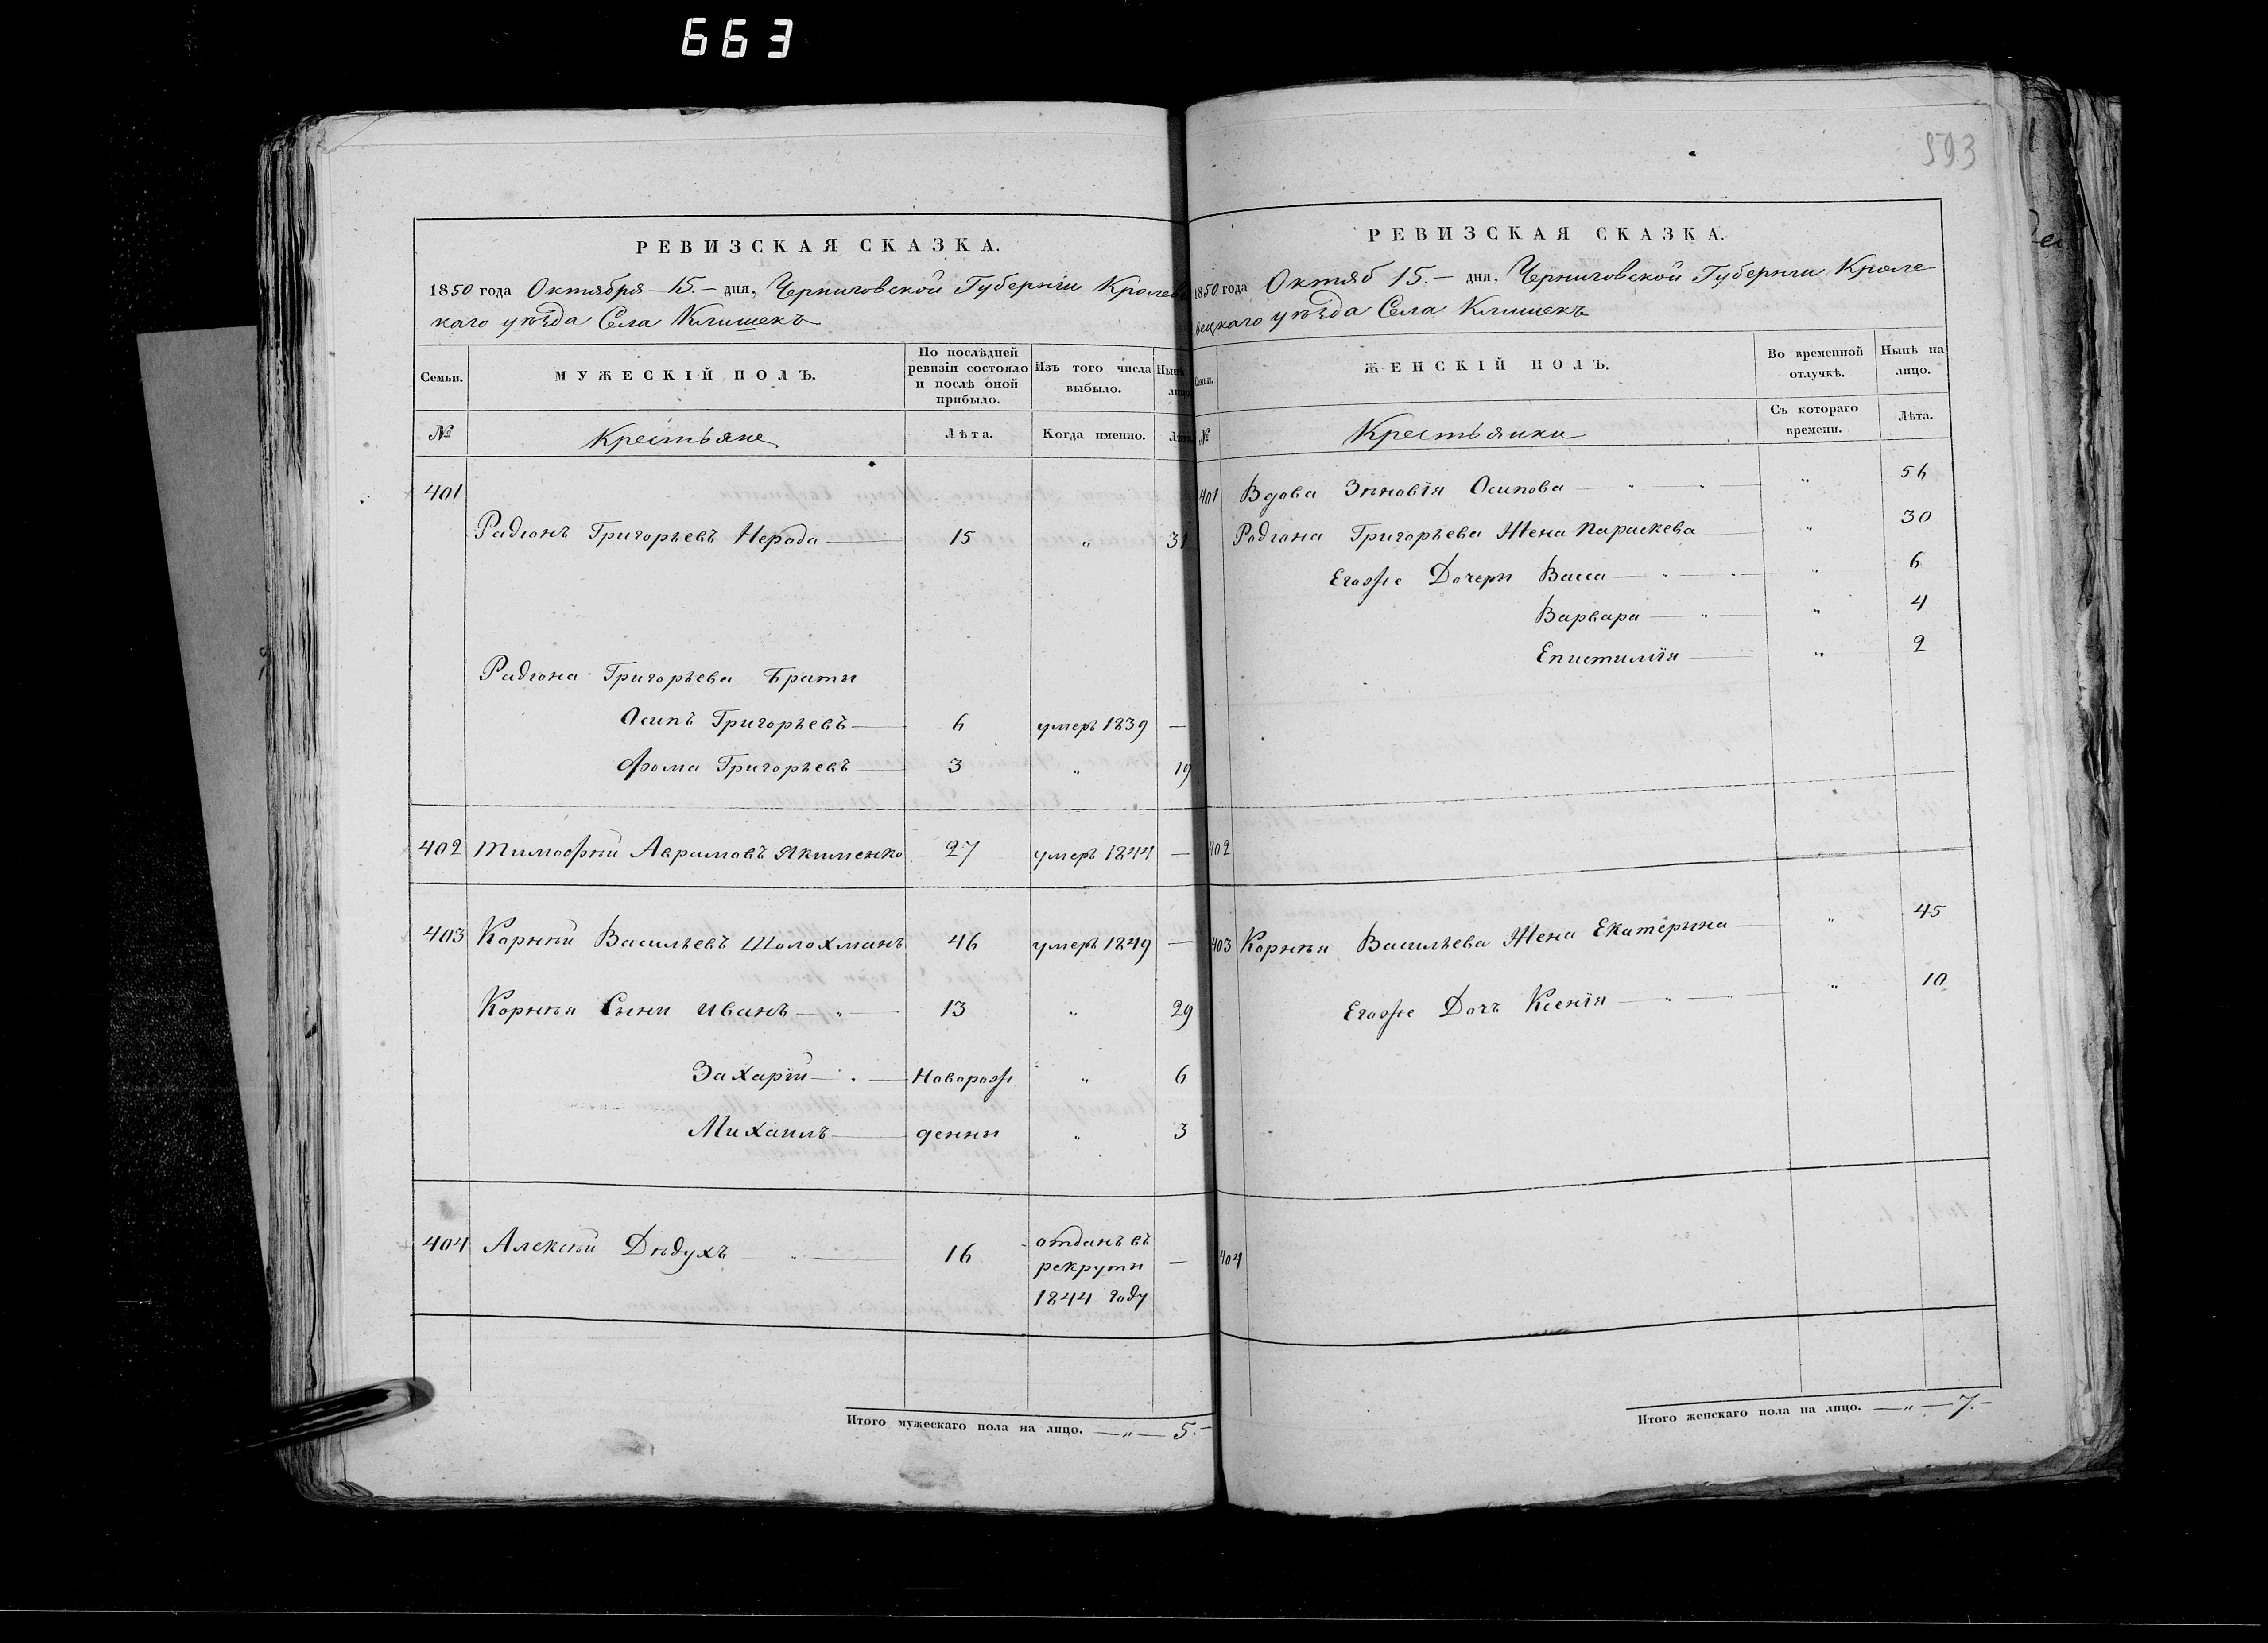 663
593
РЕВИЗСКАЯ СКАЗКА.
1850 года Октября 15.- дня, Черниговской Губернiи Кролевец
каго уѣзда Села Клишекъ
Семьи.
МУЖЕСКІЙ ПОЛЪ.
По послѣдней ревизіи состояло и послѣ оной прибыло.
Изъ того числа выбыло.
Нынѣ лицо
№
Крестьяне
Лѣта.
Когда именно.
Лѣта
401
Радіонъ Григорьевъ Нерода 15 " 31
Радіона Григорьева Браты
Осипъ Григорьевъ 6 умеръ 1839 —
Фома Григорьевъ 3 " 19
402 Тимофѣй Аврамовъ Якименко 27 умеръ 1844 —
403 Корнѣй Васильевъ Шолохманъ 46 умеръ 1849 —
Корнѣя Сыны Иванъ " 13 " 29
Захарій Новорож " 6
Михаилъ денны " 3
404 Алексѣй Дѣдухъ " 16 отданъ въ рекруты 1844 году —
Итого мужескаго пола на лицо. — " — 5.-
РЕВИЗСКАЯ СКАЗКА.
1850 года Октяб 15.- дня. Черниговской Губернiи Кроле
вецкаго уѣзда Села Клишекъ
Семьи.
ЖЕНСКІЙ ПОЛЪ.
Во временной отлучкѣ.
Нынѣ на лицо.
№
Крестьянки
Съ котораго времени.
Лѣта.
401 Вдова Зѣновія Осипова " 56
Родіона Григорьева Жена Параскева " 30
Егоже Дочеры Васса " 6
Варвара " 4
Епистимія " 2
402
403 Корнѣя Васильева Жена Екатерына " 45
Егоже Дочъ Ксенія " 10
404
Итого женскаго пола на лицо. — " — 7.-